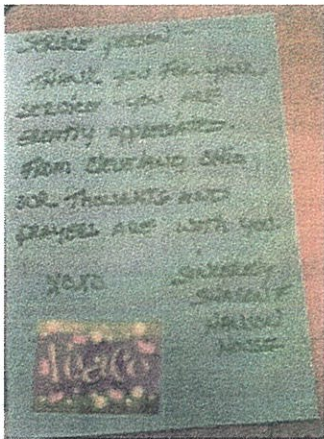 SERVICE PERSON -
THANK YOU FOR YOUR
SERVICE - YOU ARE
GREATLY APPRECIATED.
FROM CLEVELAND OHIO
OUR THOUGHTS AND
PRAYERS ARE WITH YOU.
XOXO SINCERELY
PEACE